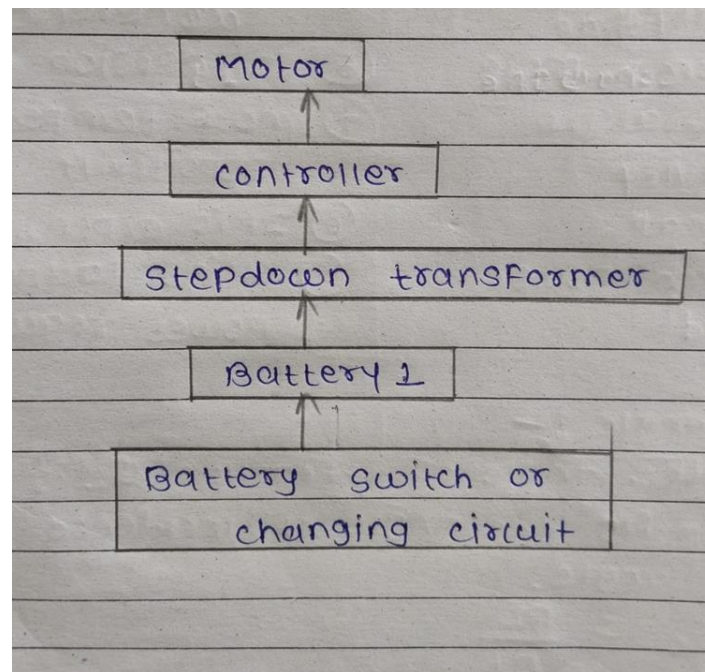 Motor
controller
Stepdown transformer
Battery 1
Battery switch or
changing circuit